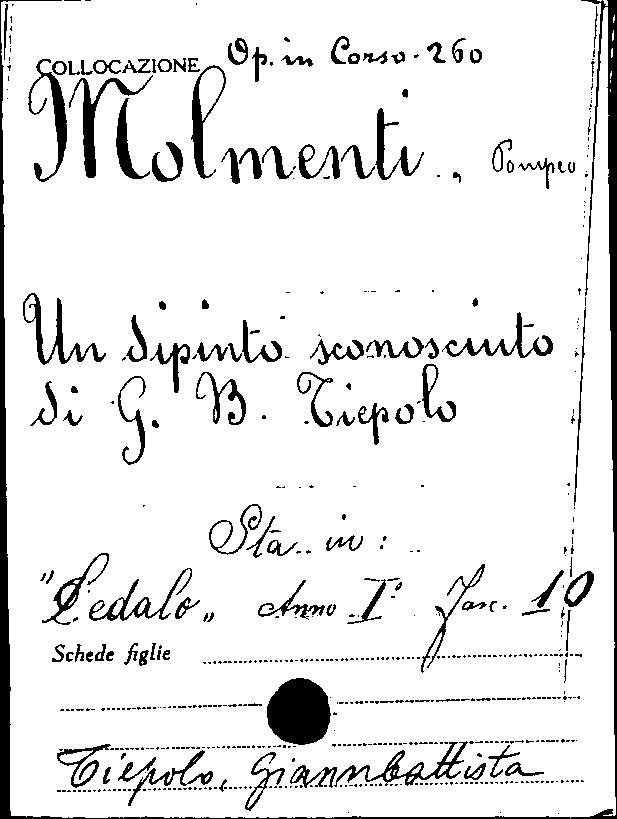 COLLOCAZIONE Op. in Corso - 260
Molmenti, Pompeo
Un dipinto sconosciuto
di G. B. Tiepolo
Sta in:
"Dedalo" Anno I° Fasc. 10
Schede figlie
Tiepolo, Giannbattista